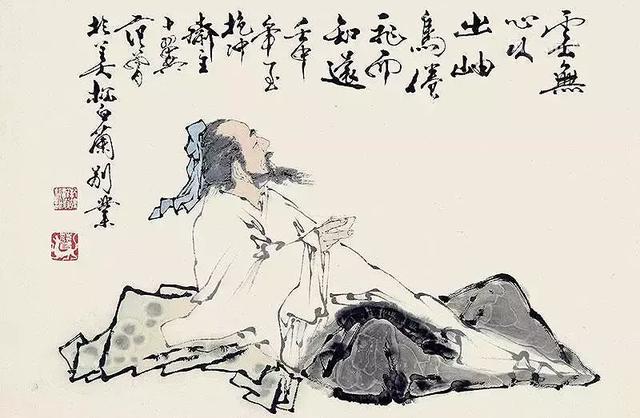 雲無
心以
出岫
鳥倦
飛而
知還
壬申
年至
抱冲
齋主
十翼
范曾
於美白蘭別業